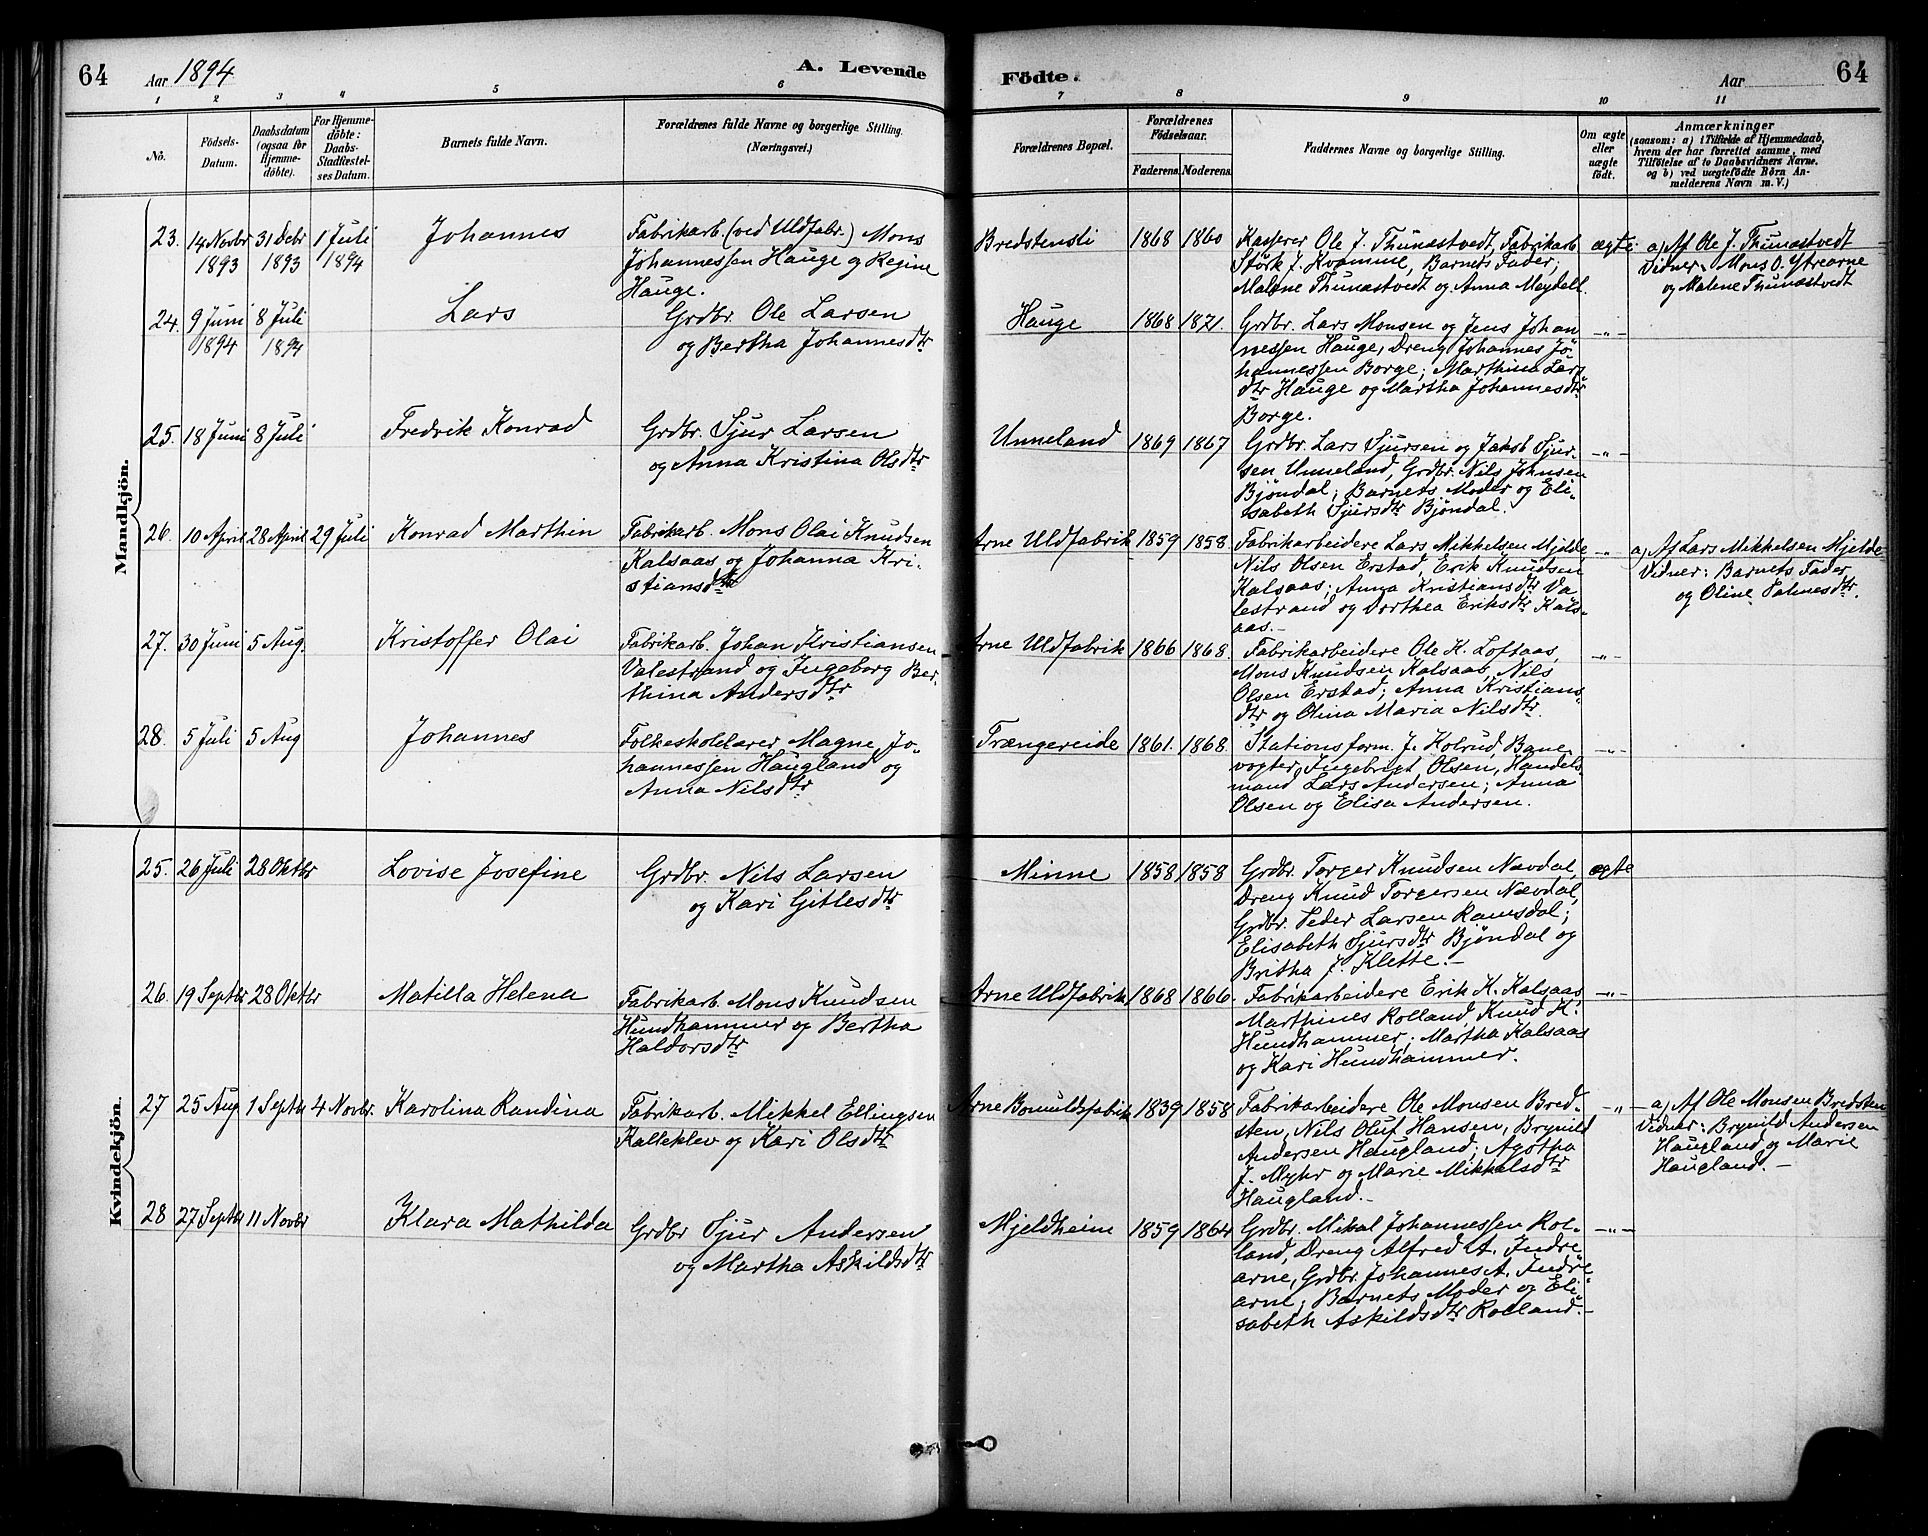 64 Aar 1894 A. Levende Födte. Aar 64
1 2 3 4 5 6 7 8 9 10 11
No.
Födsels-Datum.
Daabsdatum (ogsaa för Hjemme-döbte).
For Hjemme-döbte: Daabs-Stadfæstel-ses Datum.
Barnets fulde Navn.
Forældrenes fulde Navne og borgerlige Stilling. (Næringsvei.)
Forældrenes Bopæl.
Forældrenes Födselsaar.
Faderens. Moderens.
Faddernes Navne og borgerlige Stilling.
Om ægte eller uægte födt.
Anmærkninger
(saasom: a) i Tilfælde af Hjemmedaab,
hvem der har forrettet samme, med
Tilföielse af to Daabsvidners Navne.
og b) ved uægtefödte Börn An-
melderens Navn m. V.)
Mandkjön.
23. 14 Novbr 1893 31 Debr 1893 1 Juli 1894 Johannes
Fabrikarb. (ved Uldfabr.) Mons
Johannessen Hauge og Regine
Hauge.
Bredstensli 1868 1860
Kasserer Ole J. Thunæstvedt, Fabrikarb.
Störk J. Kvamme, Barnets Fader;
Malene Thunæstvedt og Anna Meydell.
ægte
a) Af Ole J. Thunæstvedt
Vidner: Mons O. Ytrearne
og Malene Thunæstvedt
24. 9 Juni 1894 8 Juli 1894 Lars
Grdbr. Ole Larsen
og Bertha Johannesdtr
Hauge 1868 1871.
Grdbr. Lars Monsen og Jens Johan
nessen Hauge, Dreng Johannes Jo-
hannessen Borge; Marthina Lars
dtr Hauge og Martha Johannesdtr
Borge.
-"-
25. 18 Juni 8 Juli Fredrik Konrad
Grdbr. Sjur Larsen
og Anna Kristina Olsdtr
Unneland 1869 1867
Grdbr. Lars Sjursen og Jakob Sjur-
sen Unneland, Grdbr. Nils Johnsen
Bjöndal; Barnets Moder og Eli-
sabeth Sjursdtr Bjöndal.
-"-
26. 10 April 28 April 29 Juli Konrad Marthin
Fabrikarb. Mons Olai Knudsen
Kalsaas og Johanna Kri-
stiansdtr
Arne Uldfabrik 1859 1858.
Fabrikarbeidere Lars Mikkelsen Mjelde
Nils Olsen Erstad, Erik Knudsen
Kalsaas; Anna Kristiansdtr Va
lestrand og Dorthea Eriksdtr Kals-
aas.-
-"-
a) Af Lars Mikkelsen Mjelde
Vidner: Barnets Fader
og Oline Salmesdtr.
27. 30 Juni 5 Aug. Kristoffer Olai
Fabrikarb. Johan Kristiansen
Valestrand og Ingeborg Ber-
thina Andersdtr
Arne Uldfabrik 1866 1868.
Fabrikarbeidere Ole K. Loftaas,
Mons Knudsen Kalsaas, Nils
Olsen Erstad; Anna Kristians
dtr og Olina Maria Nilsdtr.
-"-
28. 5 Juli 5 Aug Johannes
Folkeskolelærer Magne Jo-
hannessen Haugland og
Anna Nilsdtr
Trængereide 1861. 1868.
Stationsform. J. Kolrud, Bane-
vogter Ingebrigt Olsen, Handels-
mand Lars Andersen; Anna
Olsen og Elisa Andersen.
-"-
Kvindekjön.
25. 26 Juli 28 Oktbr Lovise Josefine
Grdbr. Nils Larsen
og Kari Gitlesdtr
Minne 1858 1858
Grdbr. Torger Knudsen Nævdal,
Dreng Knud Torgersen Nævdal,
Grdbr. Peder Larsen Ramsdal;
Elisabeth Sjursdtr Bjöndal og
Britha J. Klette.-
ægte
26. 19 Septbr 28 Oktbr Matilla Helena
Fabrikarb. Mons Knudsen
Hundhammer og Bertha
Haldorsdtr
Arne Uldfabrik 1868 1866.
Fabrikarbeidere Erik K. Kalsaas,
Marthines Rolland, Knud K.
Hundhammer; Martha Kalsaas
og Kari Hundhammer.
-"-
27 25 Aug 1 Septbr 4 Novbr. Karolina Randina
Fabrikarb. Mikkel Ellingsen
Kalleklev og Kari Olsdtr
Arne Bomuldsfabrik 1839 1858
Fabrikarbeidere Ole Monsen Bred-
sten, Nils Oluf Hansen, Brynild
Andersen Haugland; Agotha
J. Myhr og Marie Mikkelsdtr
Haugland.-
-"-
a) Af Ole Monsen Bredsten
Vidner: Brynild Andersen
Haugland og Marie
Haugland.-
28 27 Septbr 11 Novbr Klara Mathilda
Grdbr Sjur Andersen
og Martha Askildsdtr
Mjeldheim 1859 1864
Grdbr. Mikal Johannessen Rol-
land, Dreng Alfred A. Indre
arne, Grdbr. Johannes A. Indre-
arne; Barnets Moder og Eli-
sabeth Askildsdtr Rolland.-
-"-